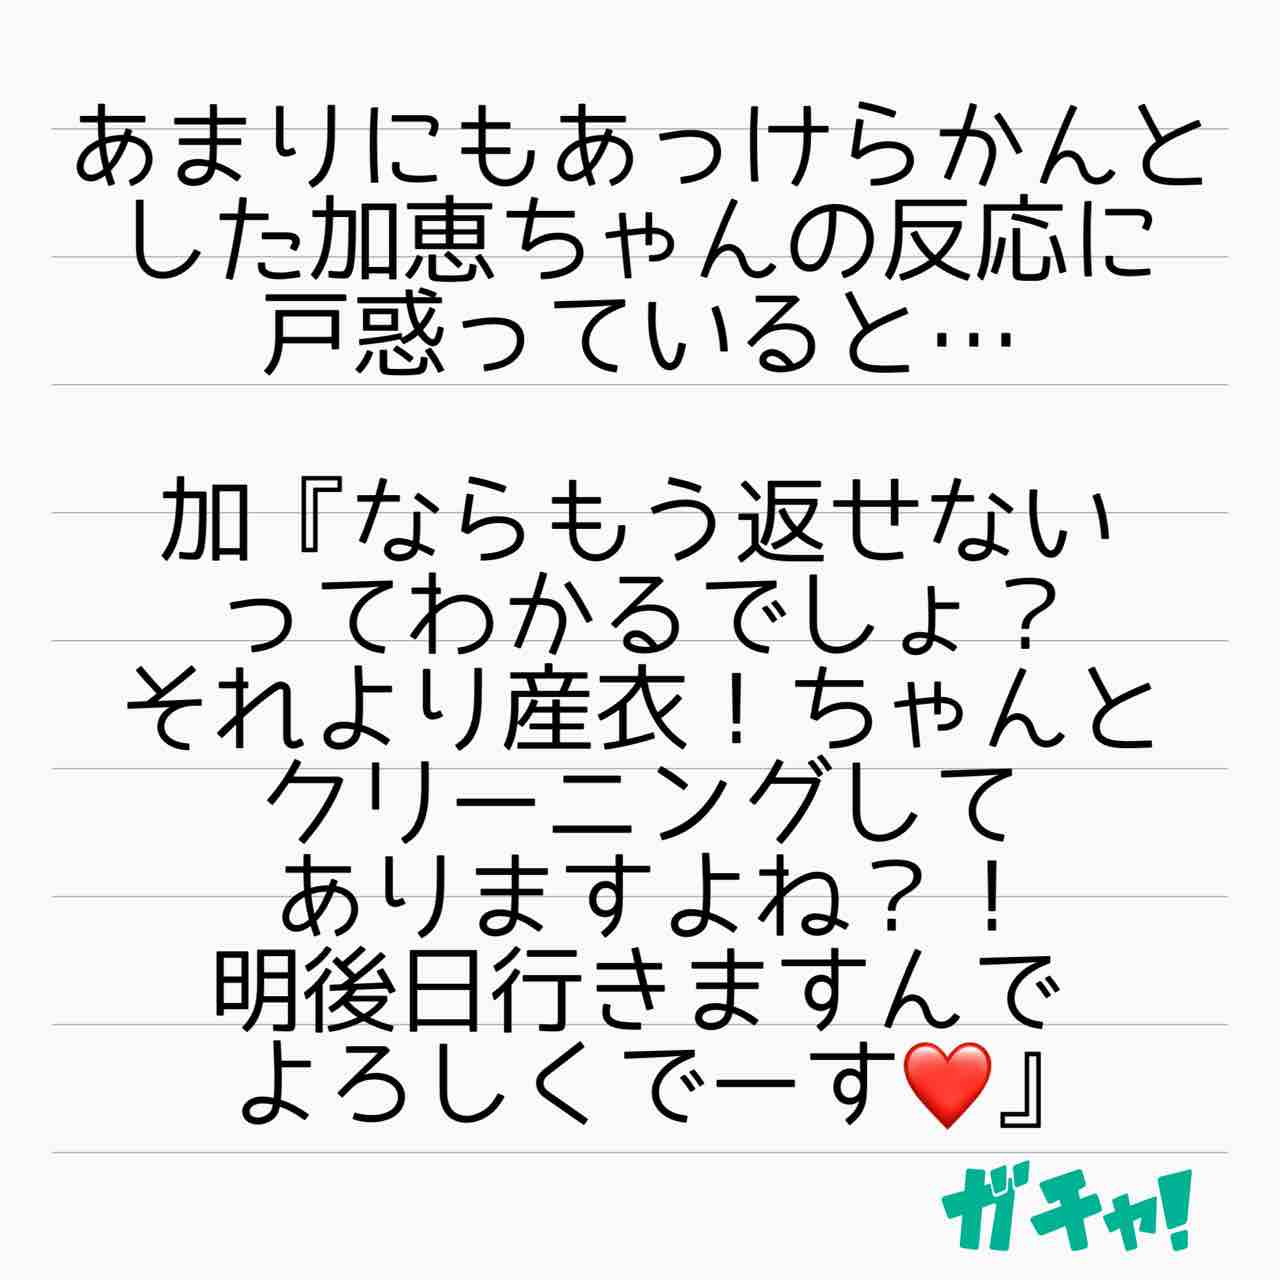 あまりにもあっけらかんと
した加恵ちゃんの反応に
戸惑っていると…
加『ならもう返せない
ってわかるでしょ？
それより産衣！ちゃんと
クリーニングして
ありますよね？！
明後日行きますんで
よろしくでーす❤️』
ガチャ!